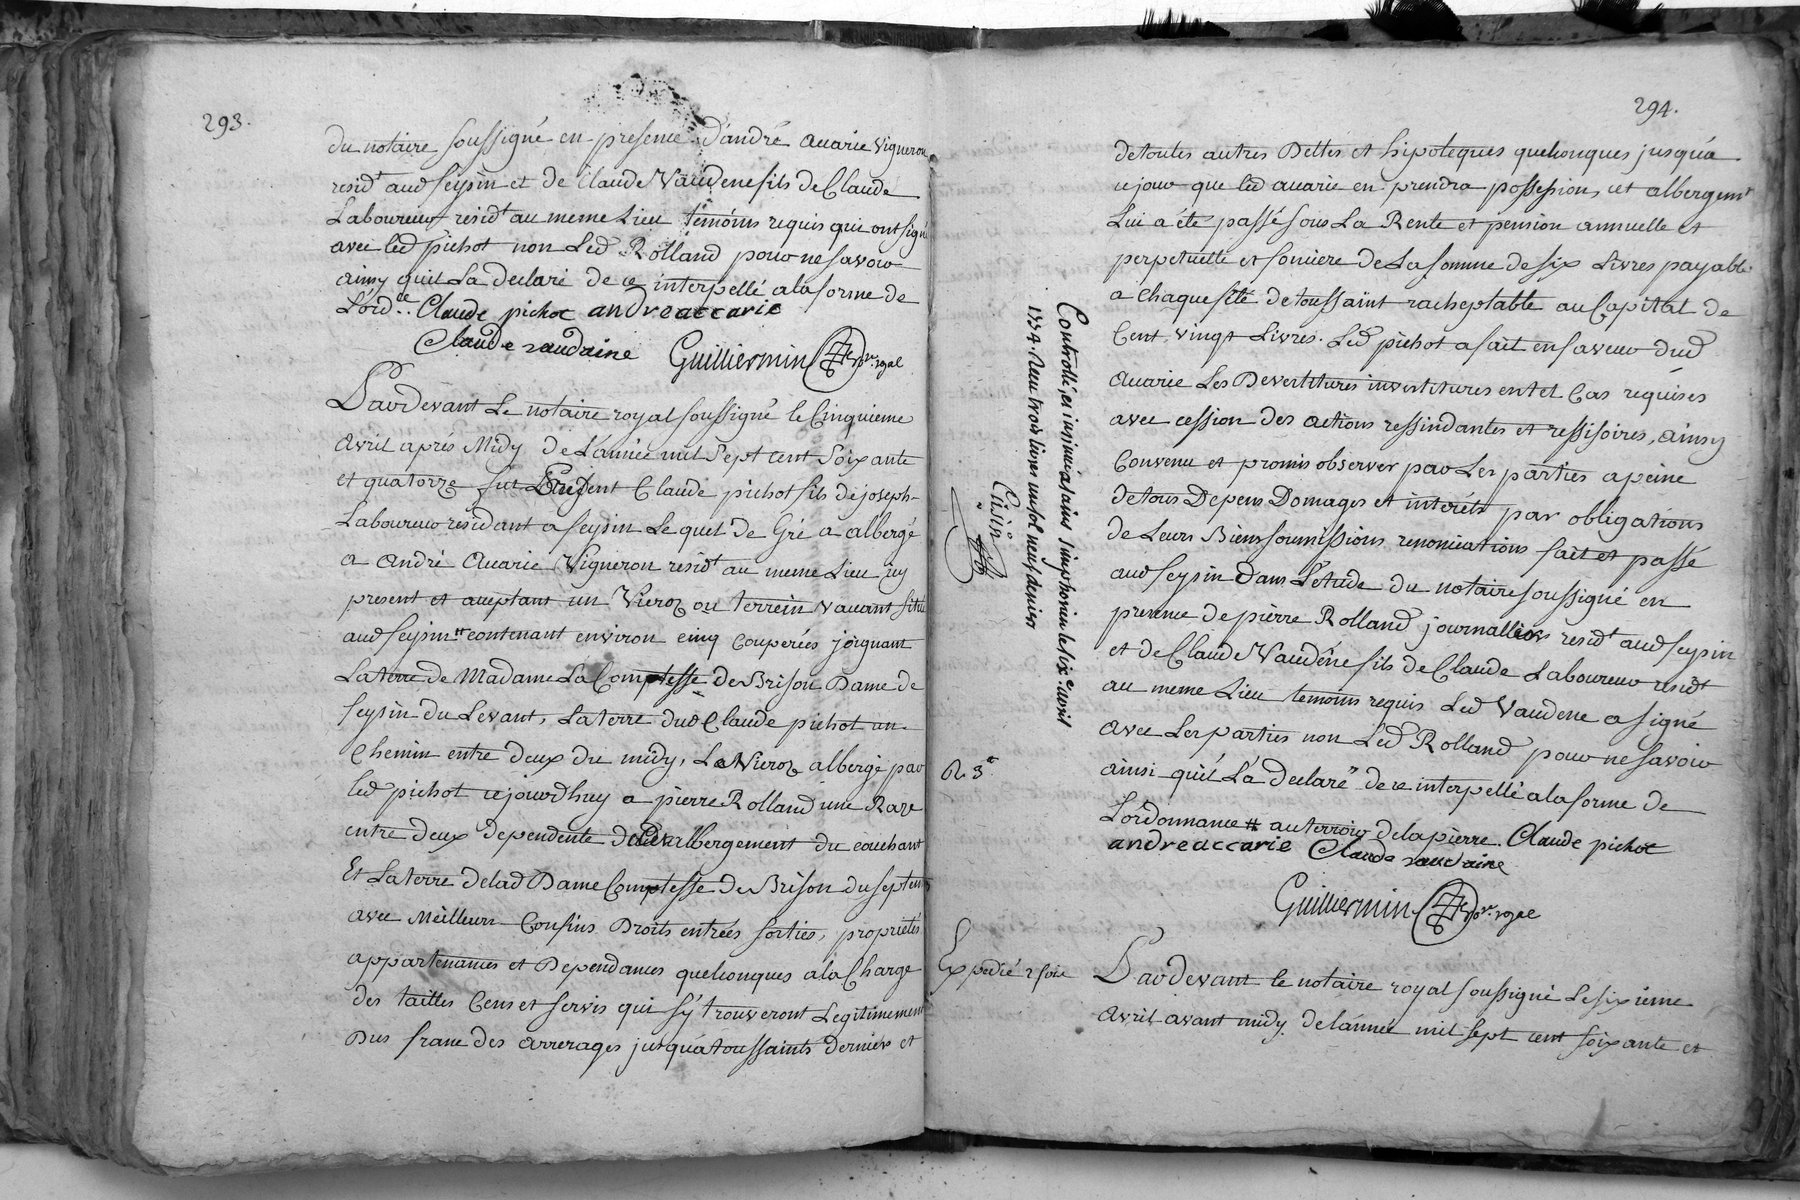 293.
du notaire soussigné en presence d'andré accarie vigneron
resid.t aud seysin et de Claude Vaudene fils de Claude
Laboureur resid.t au meme Lieu temoins requis qui ont signé
avec led pichot non Led Rolland pour ne savoir
ainsy quil La declaré de ce interpellé ala forme de
L'ord.ce Claude pichot andre accarie
Claude vaudaine Guilliermin no.re royal
Pardevant Le notaire royal soussigné le Cinquieme
avril aprés Midy de L'année mil Sept cent Soixante
et quatorze fut Présent Claude pichot fils de joseph
Laboureur résidant a seysin Lequel de Gré a albergé
a André accarie Vigneron resid.t au meme Lieu icy
present et acceptant un Vieroz ou terrein vaccant situé
aud seysin # contenant environ cinq couperées joignant
La terre de Madame La Comptesse de Brison Dame de
seysin du Levant, La terre dud Claude pichot un
Chemin entre deux du midy, Le Vieroz albergé par
led pichot cejourdhuy a pierre Rolland une Raze
entre deux dependente de cet albergement du couchant
Et La terre delad Dame Comptesse de Brison du septent
avec Meilleurs Confins Droits entrées sorties, proprietés
appartenances et Dependances quelconques ala Charge
des tailles Cens et servis qui s'y trouveront Legitimement
Dus franc des arrerages jusqu'a toussaints derniers et
294.
de toutes autres Dettes et hipoteques quelconques jusqu'a
ce jour que led accarie en prendra possession, cet albergem.t
Lui a été passé sous La Rente et pension annuelle et
perpetuelle et fonciere de La somme de six Livres payable
a chaque fête de toussaint racheptable au Capital de
Cent vingt Livres. Led pichot a fait en faveur dud
accarie Les Devertitures investitures en tel Cas requises
avec cession des actions ressindantes et ressisoires, ainsy
Convenu et promis observer par Les parties a peine
de tous Depens Domages et interéts par obligations
de Leurs Biens soumissions renonciations fait et passé
aud seysin Dans L'etude du notaire soussigné en
presence de pierre Rolland journallier resid.t aud seysin
et de Claude Vaudène fils de Claude Laboureur resid.t
au meme Lieu temoins requis Led Vaudene a signé
avec Les parties non Led Rolland pour ne savoir
ainsi qu'il L'a declaré de ce interpellé ala forme de
L'ordonnance # au terroir de la pierre. Claude pichot
andre accarie Claude vaudaine
Guilliermin no.re royal
Controllé, et insinué a saint simphorien le six.e avril
1774. Reçu trois livres un sol neuf deniers
R. 3.
Expedié 2 fois
Pardevant le notaire royal soussigné Le sixieme
avril avant midy de l'année mil sept cent soixante et